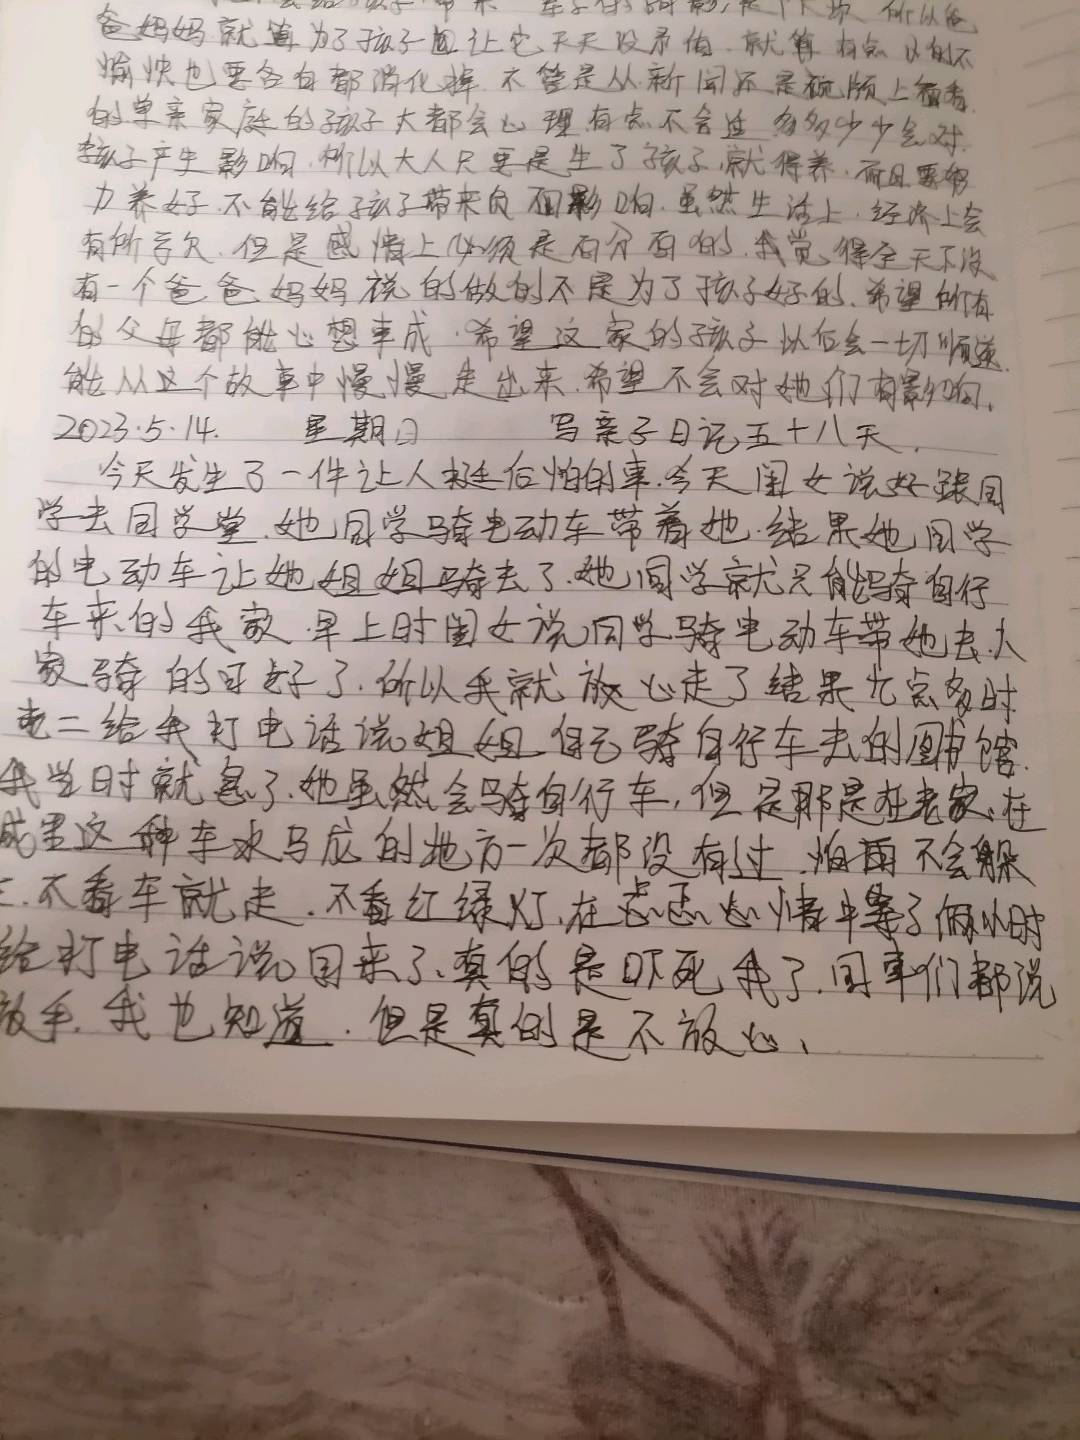 爸妈妈就算为了孩子也让它天天没矛盾,就算有点 的不
愉快也要各自都消化掉,不管是从新闻还是视频上看看,
的单亲家庭的孩子大都会心理有点不会 多多少少会对
孩子产生影响,所以大人只要是生了孩子,就得养,而且要努
力养好,不能给孩子带来负面影响,虽然生活上,经济上会
有所亏欠,但是感情上必须是百分百的,我觉得全天下没
有一个爸爸妈妈说的做的不是为了孩子好的,希望所有
的父母都能心想事成,希望这家的孩子以后会一切顺遂,
能从这个故事中慢慢走出来,希望不会对她们有影响,
2023.5.14. 星期日 写亲子日记五十八天.
今天发生了一件让人挺后怕的事,今天闺女说好跟同
学去同学堂,她同学骑电动车带着她,结果她同学
的电动车让她姐姐骑去了,她同学就只能骑自行
车来的我家,早上时闺女说同学骑电动车带她去,人
家骑的可好了,所以我就放心走了结果九点多时
老二给我打电话说姐姐自己骑自行车去的图书馆.
我当时就急了,她虽然会骑自行车,但是那是在老家,在
城里这种车水马龙的地方一次都没有过,怕面不会躲
车,不看车就走,不看红绿灯,在忐忑心情中等了俩小时
给打电话说回来了,真的是吓死我了,同事们都说
放手,我也知道,但是真的是不放心,